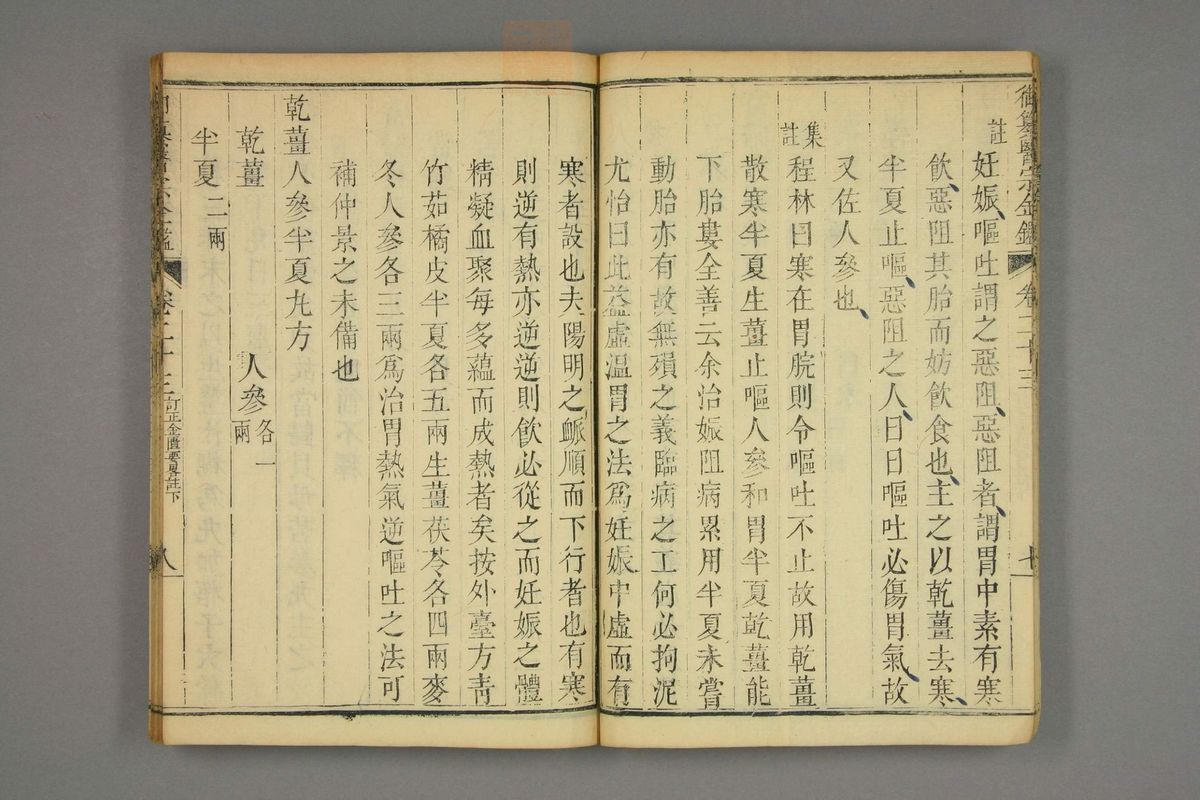 御纂醫宗金鑑 卷二十三 七
註 妊娠嘔吐謂之惡阻、惡阻者、謂胃中素有寒
飲、惡阻其胎而妨飲食也、主之以乾薑去寒、
半夏止嘔、惡阻之人、日日嘔吐必傷胃氣、故
又佐人參也、
集註 程林曰寒在胃脘則令嘔吐不止故用乾薑
散寒半夏生薑止嘔人參和胃半夏乾薑能
下胎婁全善云余治娠阻病累用半夏未嘗
動胎亦有故無殞之義臨病之工何必拘泥
尤怡曰此益虛溫胃之法爲妊娠中虛而有
寒者設也夫陽明之脈順而下行者也有寒
則逆有熱亦逆逆則飮必從之而妊娠之體
精凝血聚每多蘊而成熱者矣按外臺方靑
竹茹橘皮半夏各五兩生薑茯苓各四兩麥
冬人參各三兩爲治胃熱氣逆嘔吐之法可
補仲景之未備也
乾薑人參半夏丸方
乾薑 人參各一兩
半夏二兩
卷二十三 訂正金匱要畧註下 八